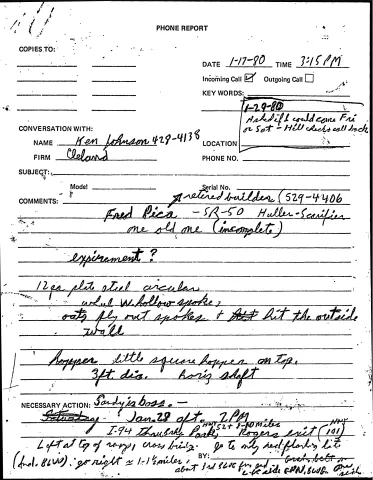 PHONE REPORT
COPIES TO:
DATE 1-17-80 TIME 3:15 PM
Incoming Call ☑ Outgoing Call ☐
KEY WORDS:
1-29-80
Asked if I could come Fri
or Sat - Hill checks call back
CONVERSATION WITH:
NAME Ken Johnson 429-4138
LOCATION
FIRM Cleland
PHONE NO.
SUBJECT:
Model Serial No.
COMMENTS: retired builder (529-4406
Fred Pica - SR-50 Huller-Scarifier
one old one (incomplete)
expirament?
12 ga plate steel circular
wheel w. hollow spoke,
oats fly out spokes + hit the outside
wall
hopper little square hopper on top.
3ft. dia. horiz shaft
NECESSARY ACTION: Sandy's boss. -
Saturday Jan. 28 aft. 2 PM
I-94 thru Park, Rogers exit (101)
Left at top of ramp, cross bridge. go to only red flash lit
go right ≈ 1-1½ miles,
BY:
about